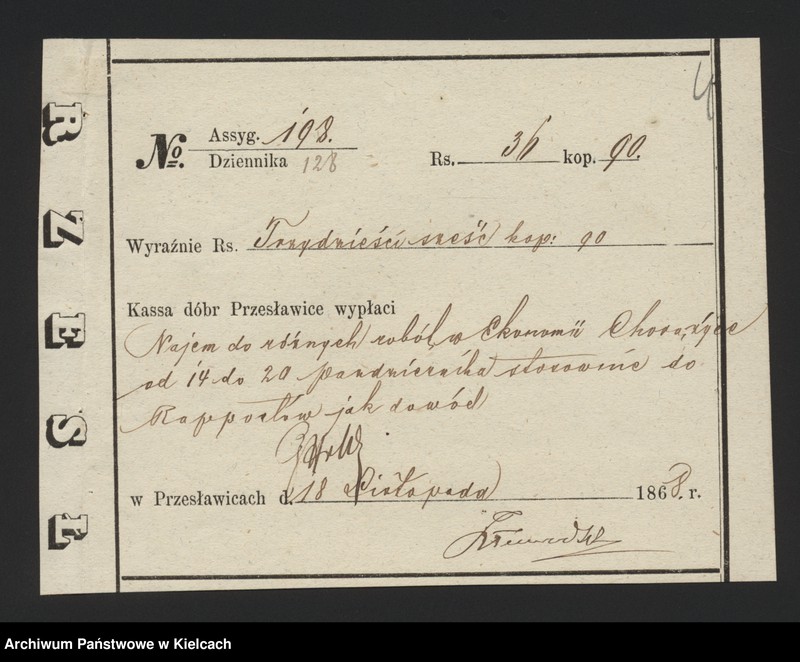 4
No. Assyg. 198.
Dziennika 128
Rs. 36 kop. 90.
Wyraźnie Rs. Trzydzieści sześć kop: 90
Kassa dóbr Przesławice wypłaci
Najem do różnych robót w Ekonomii Chorążyce
od 14 do 20 Pazdziernika stosownie do
Rapportów jak dowód
w Przesławicach d. 18 Listopada 1868. r.
RZĘSI
Archiwum Państwowe w Kielcach